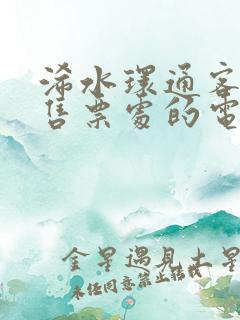 浠水環通客
售票處的電
金星遇見土星
未经同意禁止转载